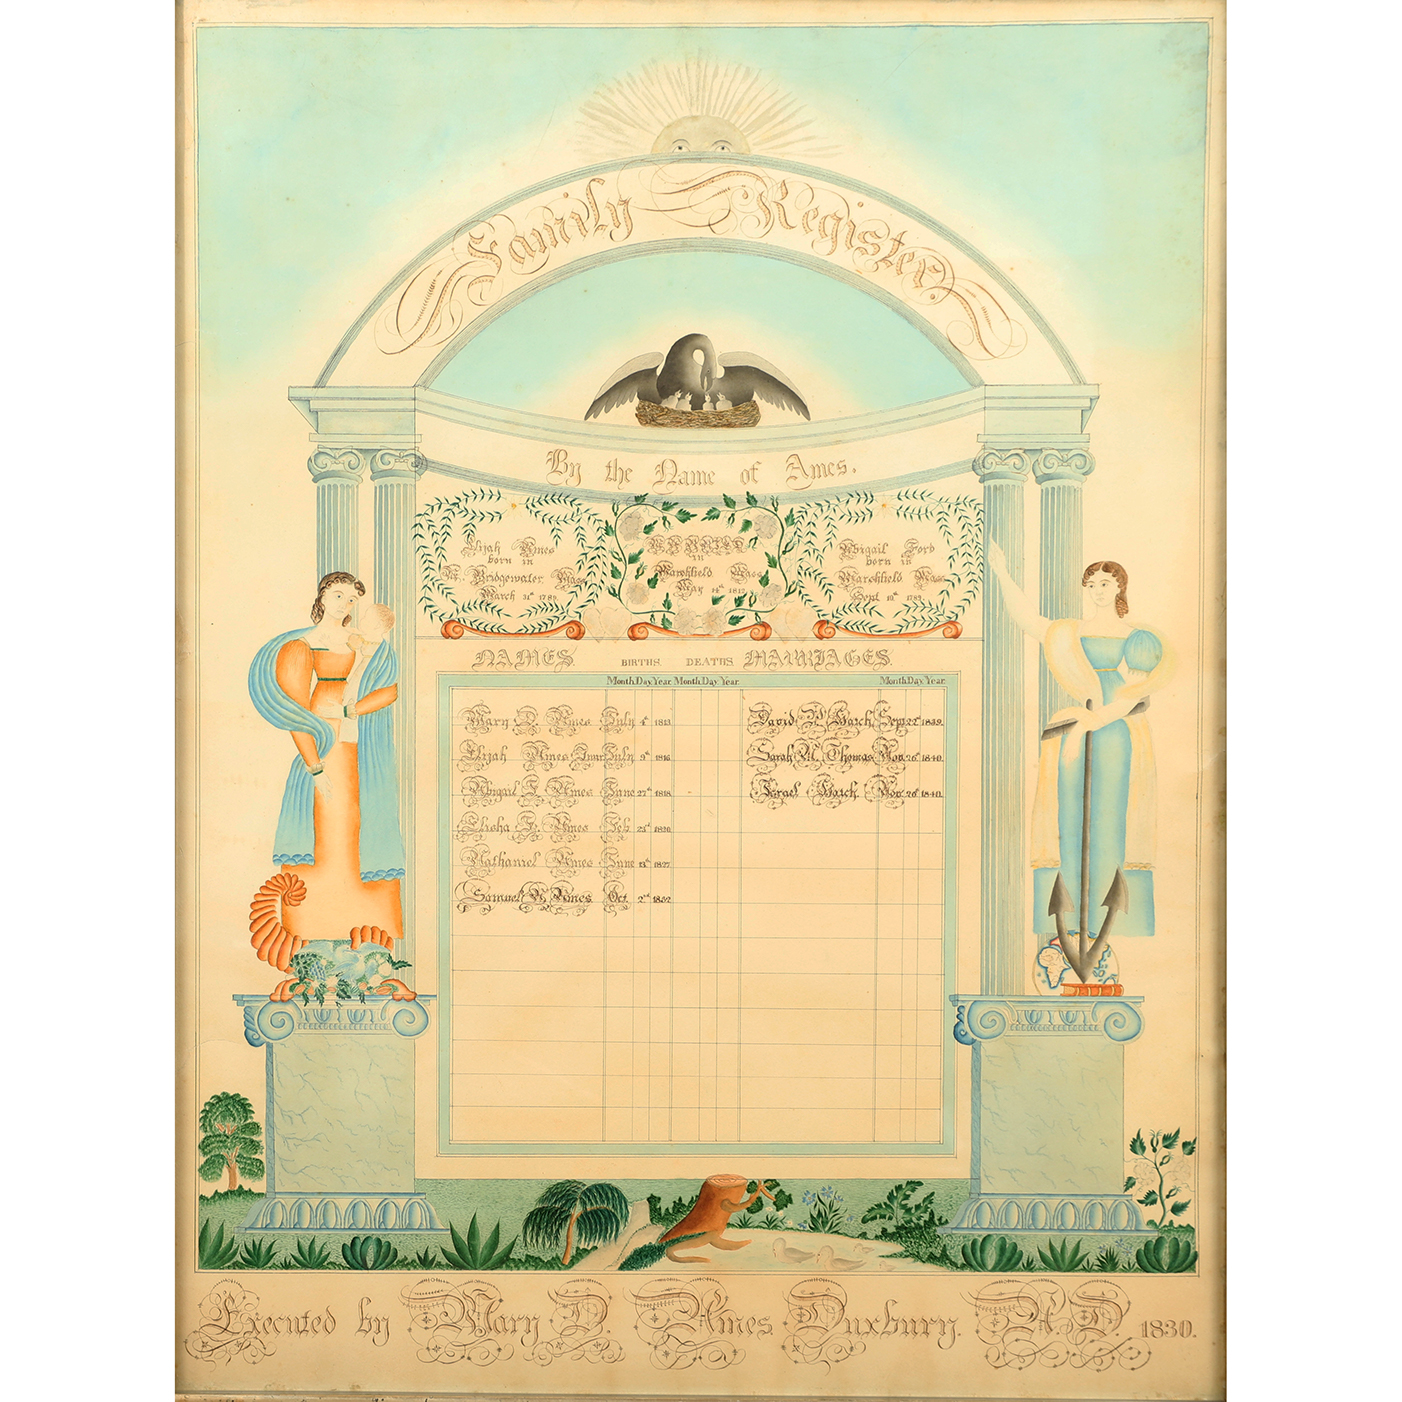 Family Register.
By the Name of Ames.
Elijah Ames
born in
Bridgewater Mass
March 31st
MARRIED
in
Marshfield Mass
May 14th 1812
Abigail Ford
born in
Marshfield Mass
Sept 10th
NAMES. BIRTHS. DEATHS. MARRIAGES.
Month. Day. Year. Month. Day. Year. Month. Day. Year.
Mary D. Ames July 4th 1813 David P. Hatch Sept 22d 1839.
Elijah Ames Junr July 9th 1816 Sarah M. Thomas Nov. 26th 1840.
Abigail F. Ames June 27th 1818 Israel Hatch Nov. 26th 1840.
Elisha F. Ames Feb 1820
Nathaniel Ames June 13th 1827
Samuel Ames Oct. 2nd 1832
Executed by Mary D. Ames Duxbury. A.D. 1830.